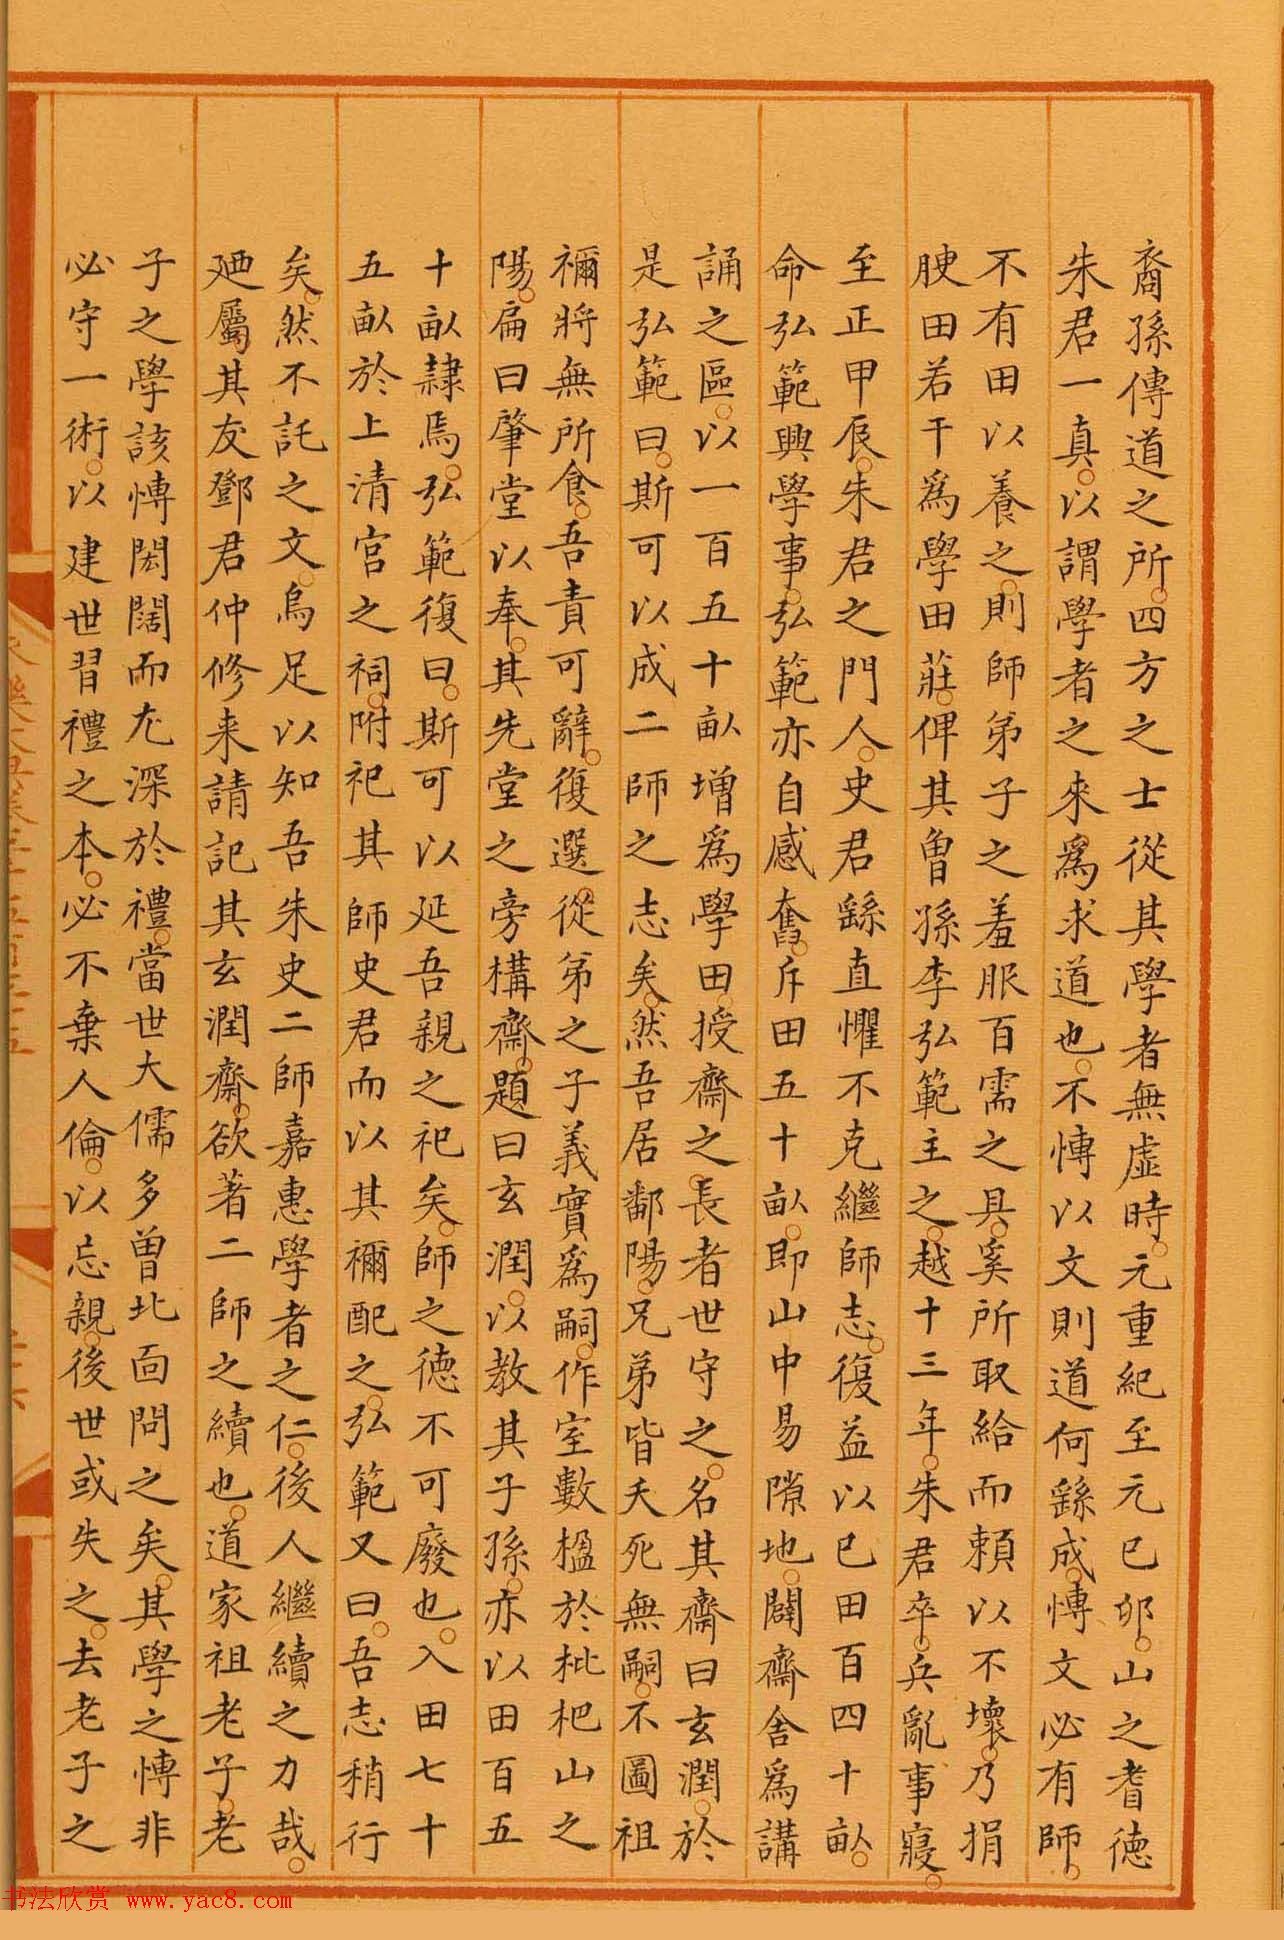 裔孫傳道之所四方之士從其學者無虛時元重紀至元己卯山之耆德
朱君一真以謂學者之來爲求道也不愽以文則道何繇成愽文必有師
不有田以養之則師弟子之羞服百需之具奚所取給而賴以不壞乃捐
腴田若干爲學田莊俾其曾孫李弘範主之越十三年朱君卒兵亂事寢
至正甲辰朱君之門人史君繇直懼不克繼師志復益以已田百四十畝
命弘範興學事弘範亦自感奮斥田五十畝即山中易隙地闢齋舍爲講
誦之區以一百五十畝增爲學田授齋之長者世守之名其齋曰玄潤於
是弘範曰斯可以成二師之志矣然吾居鄱陽兄弟皆夭死無嗣不圖祖
禰將無所食吾責可辭復選從弟之子義實爲嗣作室數楹於枇杷山之
陽扁曰肇堂以奉其先堂之旁構齋題曰玄潤以教其子孫亦以田百五
十畝隷焉弘範復曰斯可以延吾親之祀矣師之德不可廢也入田七十
五畝於上清宮之祠附祀其師史君而以其禰配之弘範又曰吾志稍行
矣然不託之文烏足以知吾朱史二師嘉惠學者之仁後人繼續之力哉
廼屬其友鄧君仲修来請記其玄潤齋欲著二師之續也道家祖老子老
子之學該愽閎闊而尤深於禮當世大儒多曽北面問之矣其學之愽非
必守一術以建世習禮之本必不棄人倫以忘親後世或失之去老子之
书法欣赏 www.yac8.com